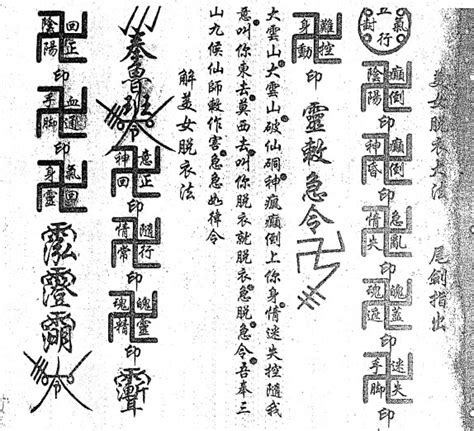 美女脱衣大法　尾劍指出
五行氣封
陰陽癲倒印
神昏癲倒印
情失急亂印
魂遮魄蓋印
手脚迷失印
身動難控印
靈敕急令
大雲山大雲山破仙硐神瘋癲倒上你身情迷失控隨我
意叫你東去莫西去叫你脱衣就脱衣急脱急令吾奉三
山九候仙師敕作害急急如律令
解美女脱衣法
奉魯班令
神回意正印
情常隨行印
魂精魄靈印
陰陽回正印
手脚血通印
身靈氣回
令